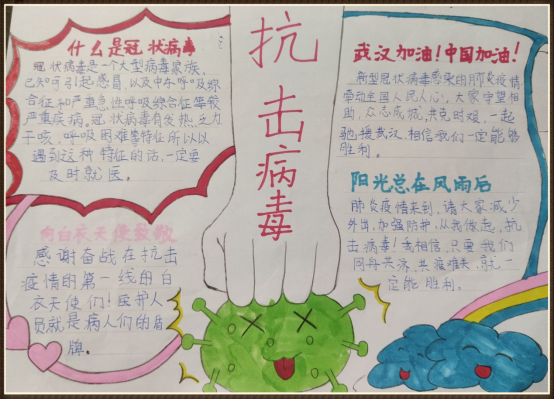 抗击病毒
什么是冠状病毒
冠状病毒是一个大型病毒家族,
已知可引起感冒,以及中东呼吸综
合征和严重急性呼吸综合征等较
严重疾病。冠状病毒有发热、乏力
干咳,呼吸困难等特征所以以
遇到这种特征的话,一定要
及时就医。
向白衣天使致敬
感谢奋战在抗击
疫情的第一线的白
衣天使们!医护人
员就是病人们的盾
牌。
武汉加油!中国加油!
新型冠状病毒感染由肺炎疫情
牵动全国人民人心,大家守望相
助,众志成城,共克时艰,一起
驰援武汉,相信我们一定能够
胜利。
阳光总在风雨后
肺炎疫情来到,请大家减少
外出,加强防护,从我做起,抗
击病毒!我相信,只要我们
同舟共济,共渡难关,就一
定能胜利。